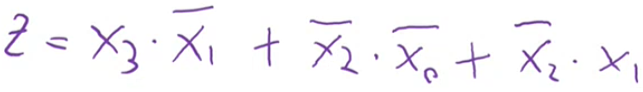 Z = X₃ · X̅₁ + X̅₂ · X̅₀ + X̅₂ · X₁